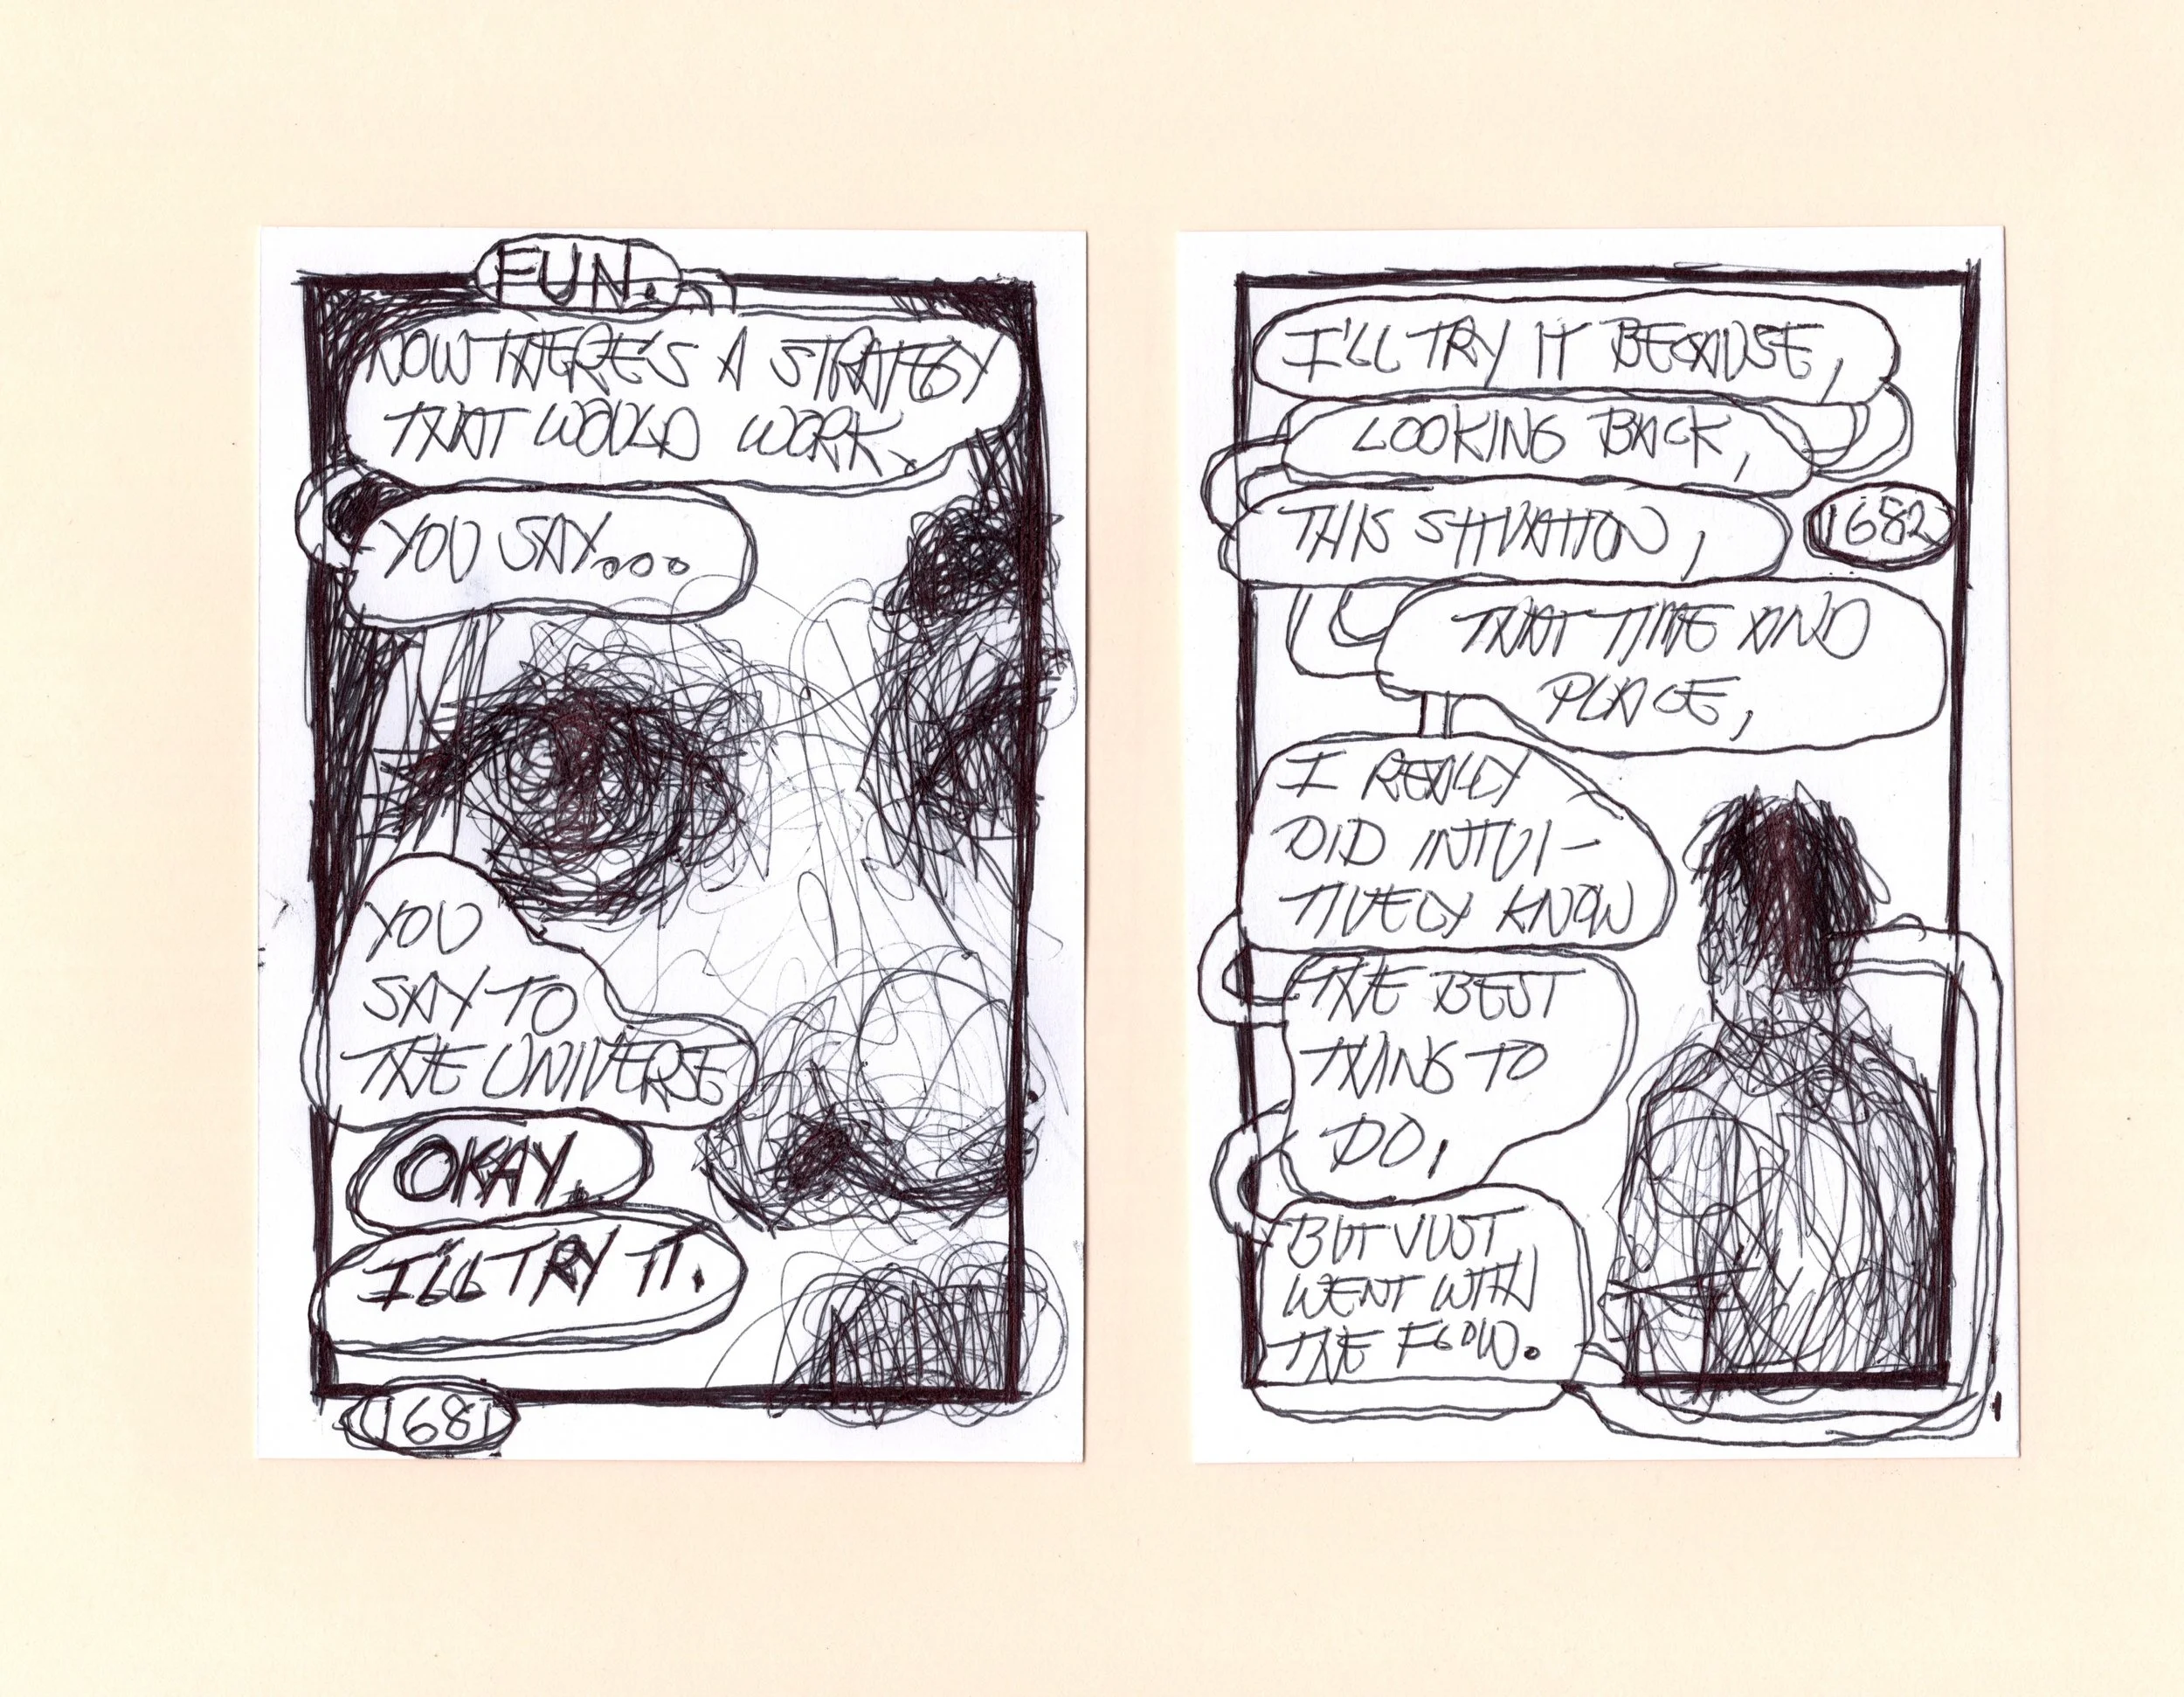 FUN.
NOW THERE'S A STRATEGY
THAT WOULD WORK.
YOU SAY...
YOU
SAY TO
THE UNIVERSE
OKAY.
I'LL TRY IT.
1681
I'LL TRY IT BECAUSE,
LOOKING BACK,
THIS SITUATION,
1682
THAT TIME AND
PLACE,
I REALLY
DID INTUI-
TIVELY KNOW
THE BEST
THING TO
DO,
BUT JUST
WENT WITH
THE FLOW.